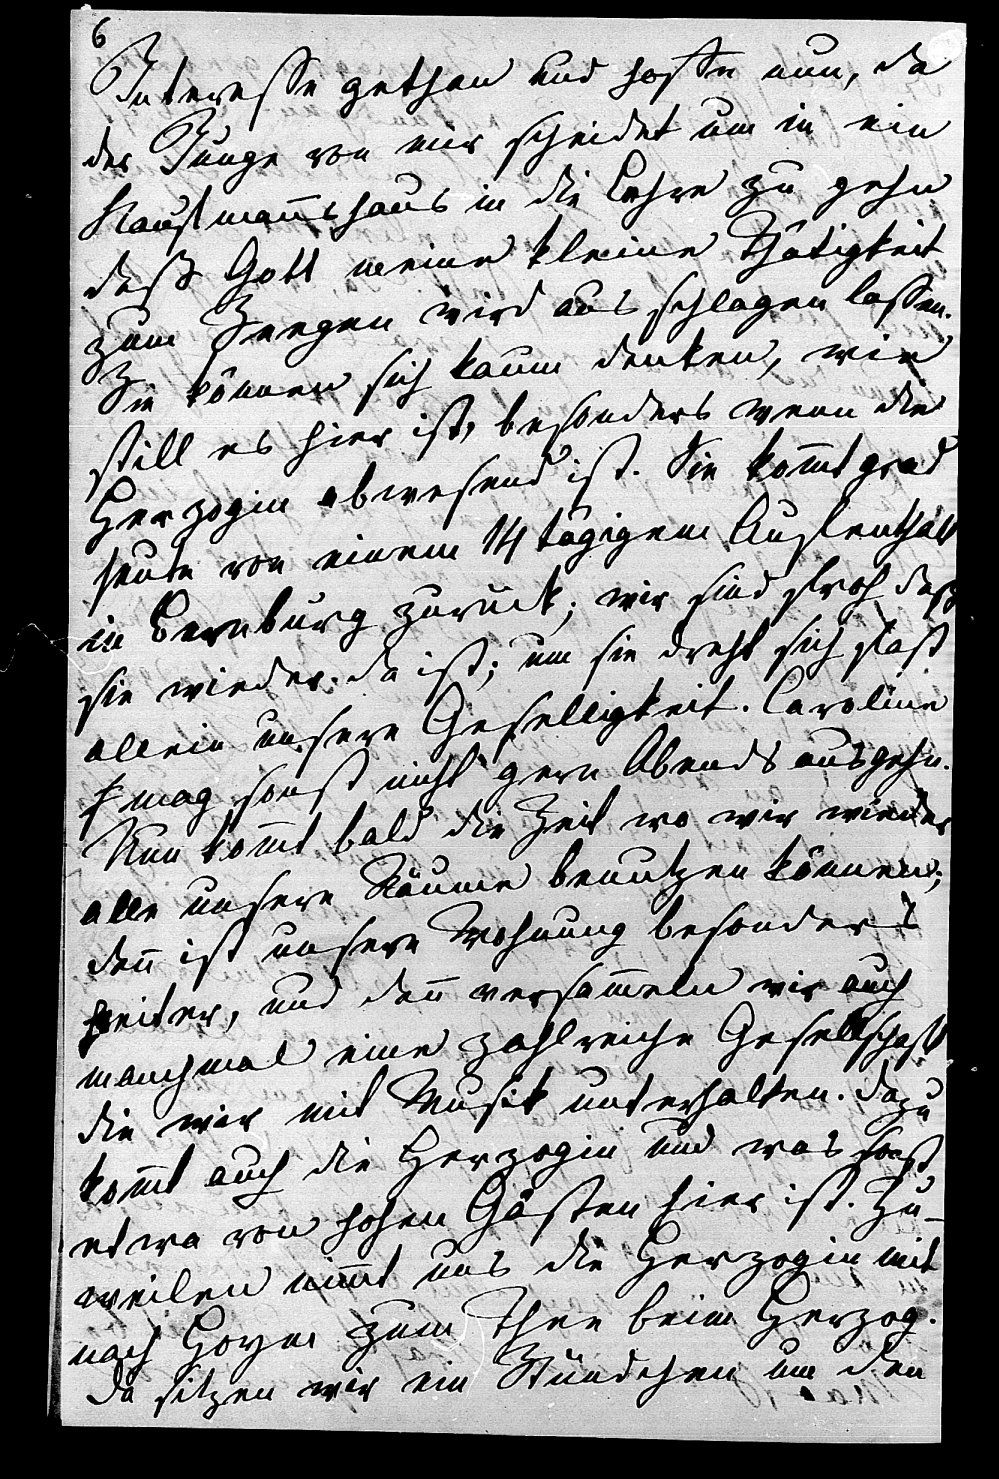 6
Interesse gethan und hoffe nun, da
der Junge von mir scheidet um in ein
Kaufmannshaus in die Lehre zu gehn
daß Gott meine kleine Thätigkeit
zum Seegen wird aus schlagen lassen.
Sie können sich kaum denken, wie
still es hier ist, besonders wenn die
Herzogin abwesend ist. Sie kom̅t grad
heute von einem 14 tägigem Aufenthalt
in Bernburg zurück; wir sind froh daß
sie wieder da ist; um sie dreht sich fast
allein unsere Geselligkeit. Caroline
mag sonst nicht gern Abends ausgehn.
Nun kom̅t bald die Zeit wo wir wieder
alle unsere Räume benutzen können;
dan̅ ist unsere Wohnung besonders
heiter, und dan̅ versam̅eln wir auch
manchmal eine zahlreiche Gesellschaft
die wir mit Musik unterhalten. Dazu
kom̅t auch die Herzogin und was sonst
etwa von hohen Gästen hier ist. Zu-
weilen nim̅t uns die Herzogin mit
nach Hoym zum Thee beim Herzog.
Da sitzen wir ein Stündchen um den